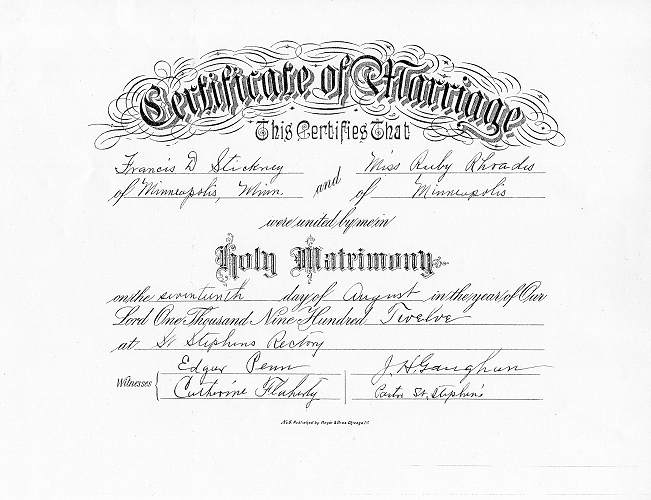 Certificate of Marriage
This Certifies That
Francis D Stickney and Miss Ruby Rhoades
of Minneapolis, Minn. of Minneapolis
were united by me in
Holy Matrimony
on the seventeenth day of August in the year of Our
Lord One Thousand Nine Hundred Twelve
at St Stephens Rectory
Witnesses { Edgar Penn
Catherine Flaherty
J. H. Gaughan
Pastor St. Stephen's
Published by Meyer & Bros Chicago Ill